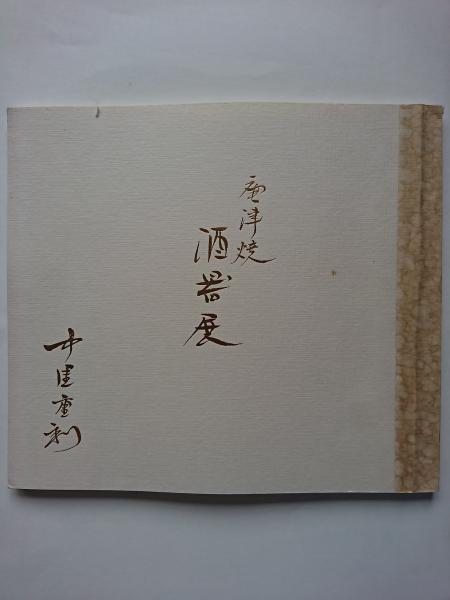 唐津焼
酒器展
中里重利